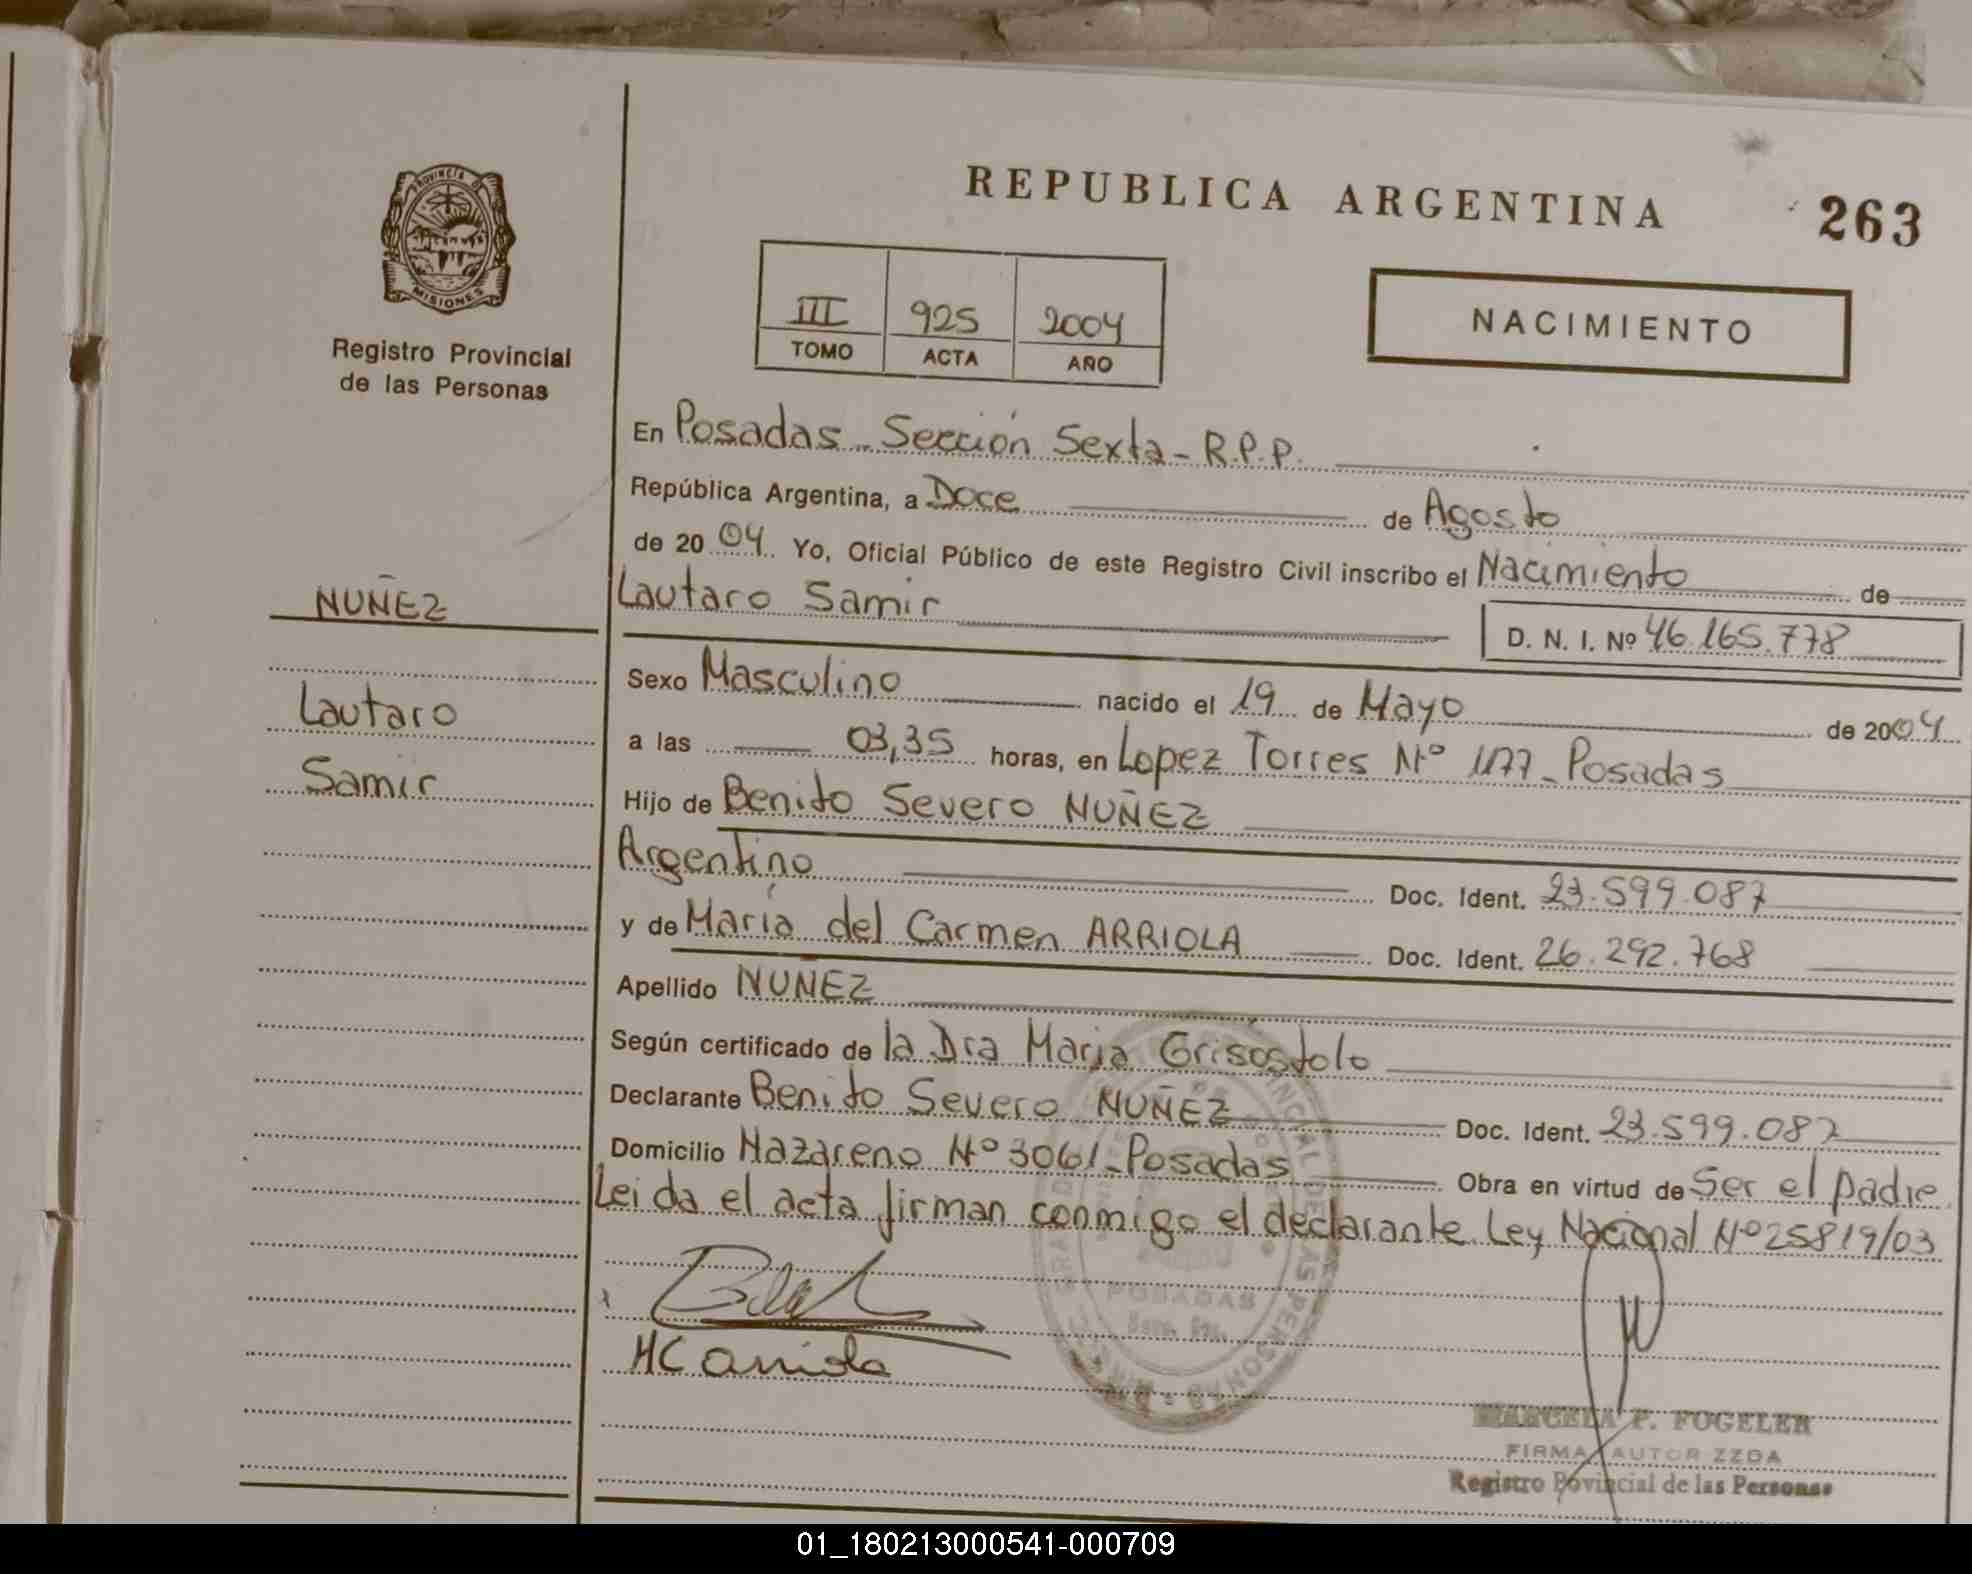 REPUBLICA ARGENTINA
263
PROVINCIA DE
MISIONES
Registro Provincial
de las Personas
III 925 2004
TOMO ACTA AÑO
NACIMIENTO
En Posadas - Sección Sexta - R.P.P.
República Argentina, a Doce de Agosto
de 2004 Yo, Oficial Público de este Registro Civil inscribo el Nacimiento de
NUÑEZ
Lautaro Samir
D. N. I. Nº 46.165.778
Lautaro
Samir
Sexo Masculino nacido el 19 de Mayo de 2004
a las 03,35 horas, en Lopez Torres Nº 1177 - Posadas
Hijo de Benito Severo NUÑEZ
Argentino Doc. Ident. 23.599.087
y de María del Carmen ARRIOLA Doc. Ident. 26.292.768
Apellido NUÑEZ
Según certificado de la Dra Maria Grisostolo
Declarante Benito Severo NUÑEZ Doc. Ident. 23.599.087
Domicilio Nazareno Nº 3061 - Posadas Obra en virtud de Ser el padre
Leida el acta firman conmigo el declarante. Ley Nacional Nº 25819/03
POSADAS
MC Arriola
MARCELA P. FOGELER
FIRMA AUTORIZZDA
Registro Povincial de las Personas
01_180213000541-000709